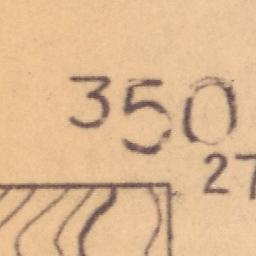 350
27